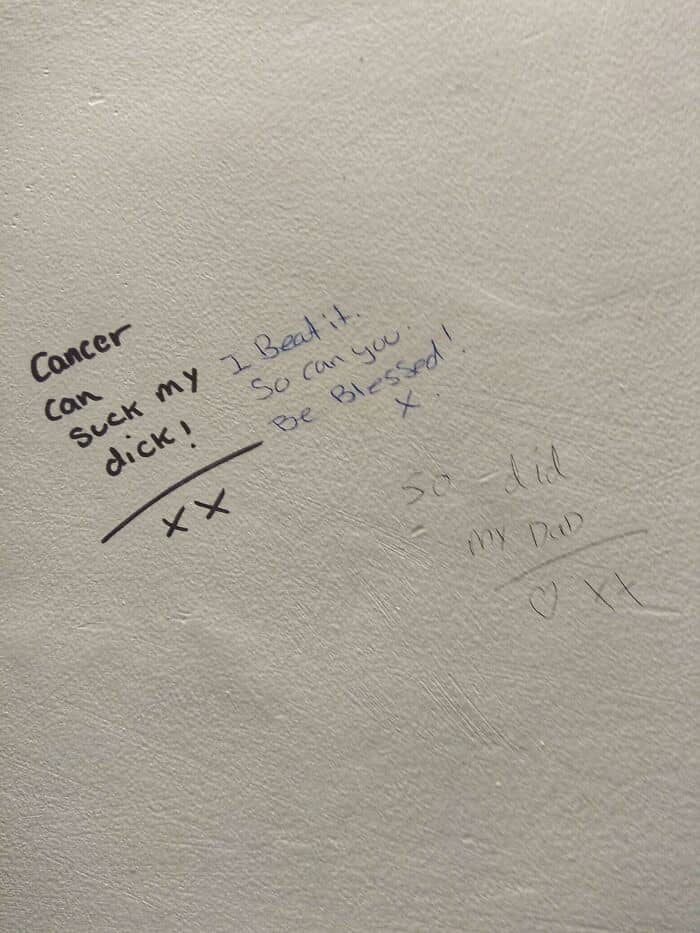 Cancer
can
suck my
dick!
XX
I Beat it.
So can you.
Be Blessed!
X.
so did
my DaD
♡ XX